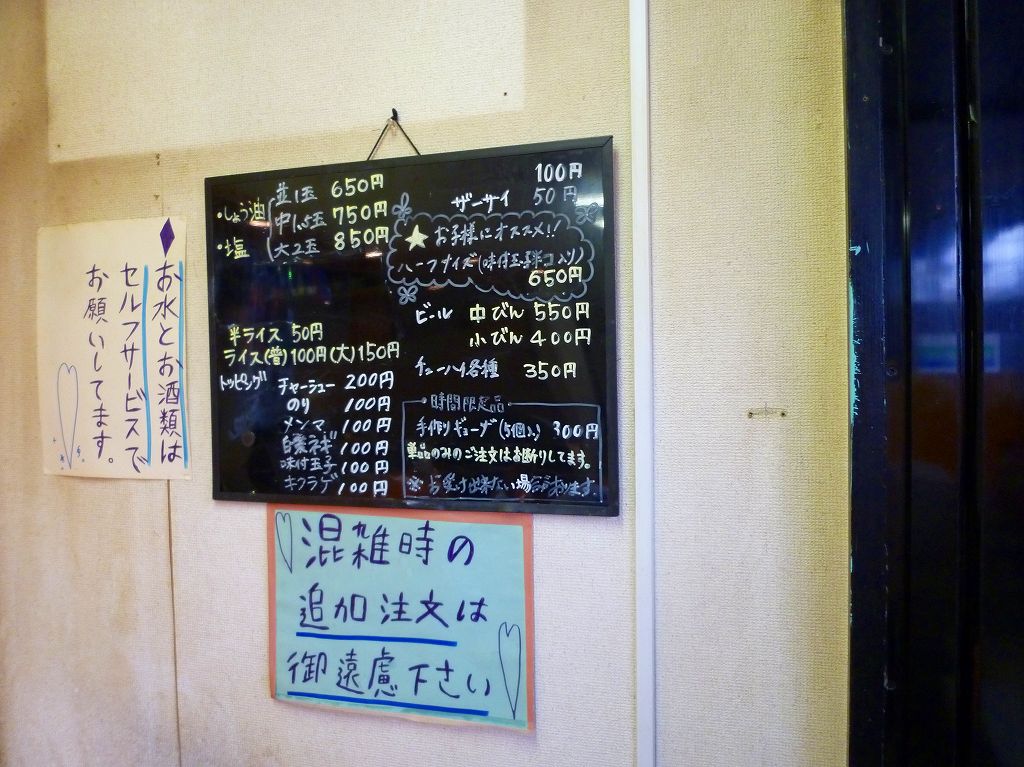 お水とお酒類は
セルフサービスで
お願いしてます。
・しょう油
・塩
並1玉 650円
中1.5玉 750円
大2玉 850円
半ライス 50円
ライス(普)100円(大)150円
トッピング チャーシュー 200円
のり 100円
メンマ 100円
白髪ネギ 100円
味付玉子 100円
キクラゲ 100円
100円
ザーサイ 50円
★お子様にオススメ!!
ハーフサイズ(味付玉子半コ入り)
650円
ビール 中びん 550円
小びん 400円
チューハイ各種 350円
時間限定品
手作りギョーザ(5個入) 300円
単品のみのご注文はお断りしてます。
※お受け出来ない場合があります。
混雑時の
追加注文は
御遠慮下さい